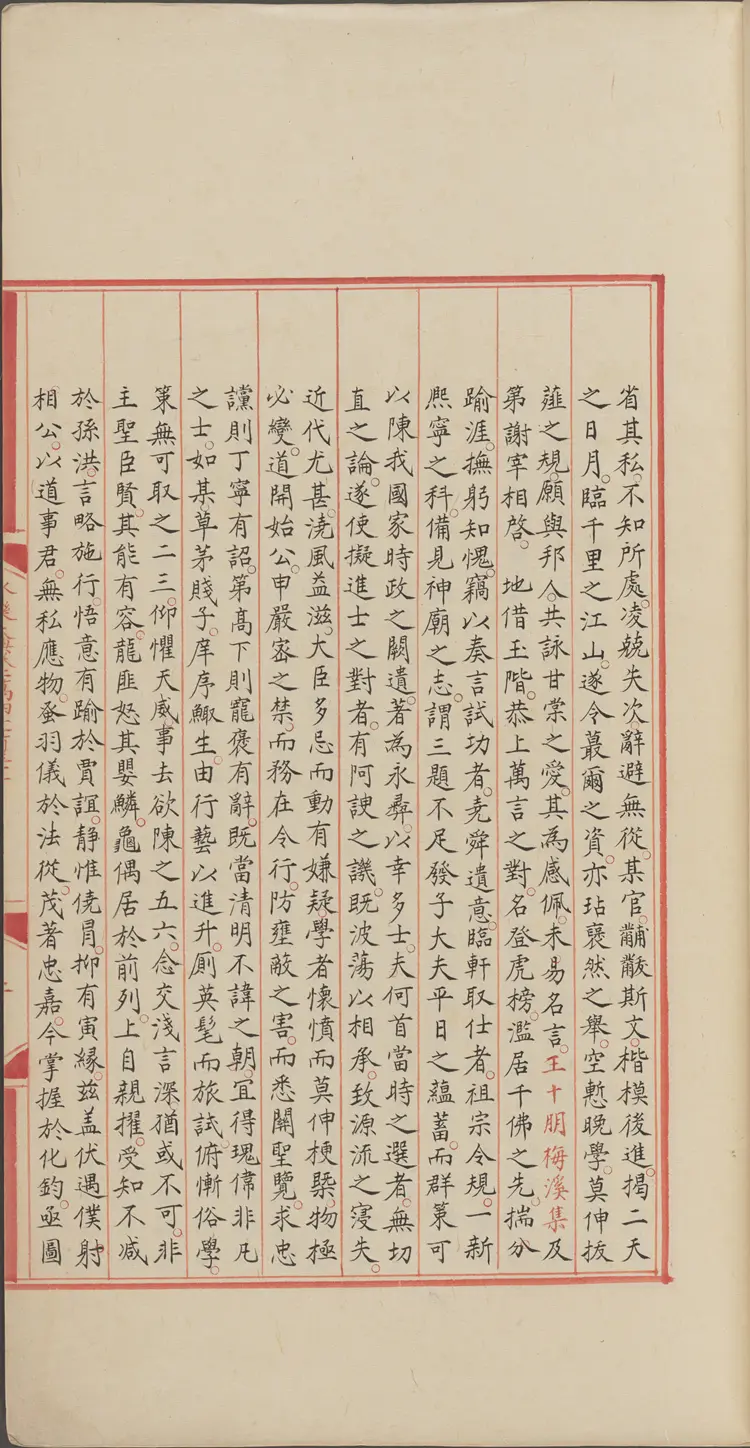 省其私。不知所處。凌兢失次。辭避無從。某官黼黻斯文。楷模後進。揭二天
之日月。臨千里之江山。遂令蕞爾之資。亦玷褎然之舉。空慙晚學。莫伸拔
薤之規。願與邦人。共詠甘棠之愛。其為感佩。未易名言。王十朋梅溪集及
第謝宰相啓。地借玉階。恭上萬言之對。名登虎榜。濫居千佛之先。揣分
踰涯。撫躬知愧。竊以奏言試功者。堯舜遺意。臨軒取仕者。祖宗令規。一新
熈寧之科。備見神廟之志。謂三題不足發子大夫平日之蘊蓄。而群策可
以陳我國家時政之闕遺。著為永彞。以幸多士。夫何首當時之選者。無切
直之論。遂使擬進士之對者。有阿諛之譏。既波蕩以相承。致源流之寖失。
近代尤甚。澆風益滋。大臣多忌而動有嫌疑。學者懷憤而莫伸梗槩。物極
必變。道開始公。申嚴宻之禁。而務在令行。防壅蔽之害。而悉關聖覽。求忠
讜則丁寧有詔。第髙下則寵褒有辭。既當清明不諱之朝。宜得瑰偉非凡
之士。如某草茅賤子。庠序鯫生。由行藝以進升。厠英髦而旅試。俯慚俗學。
策無可取之二三。仰懼天威事去欲陳之五六。念交淺言深猶或不可。非
主聖臣賢。其能有容。龍匪怒其嬰鱗。龜偶居於前列。上自親擢。受知不减
於孫洪。言略施行。悟意有踰於賈誼。静惟僥冐。抑有寅緣。兹盖伏遇僕射
相公。以道事君。無私應物。蚤羽儀於法從。茂著忠嘉。今掌握於化鈞。亟圖